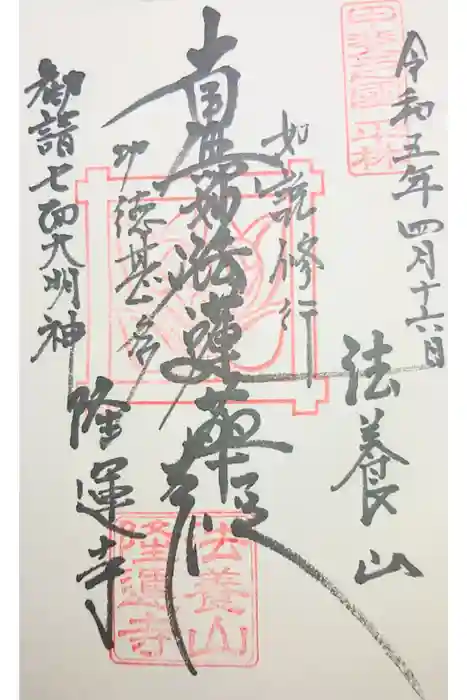 令和五年四月十六日
法養山
如説修行
南無妙法蓮華経
功徳甚多
隆運寺
御首題七面大明神
法養山
隆運寺